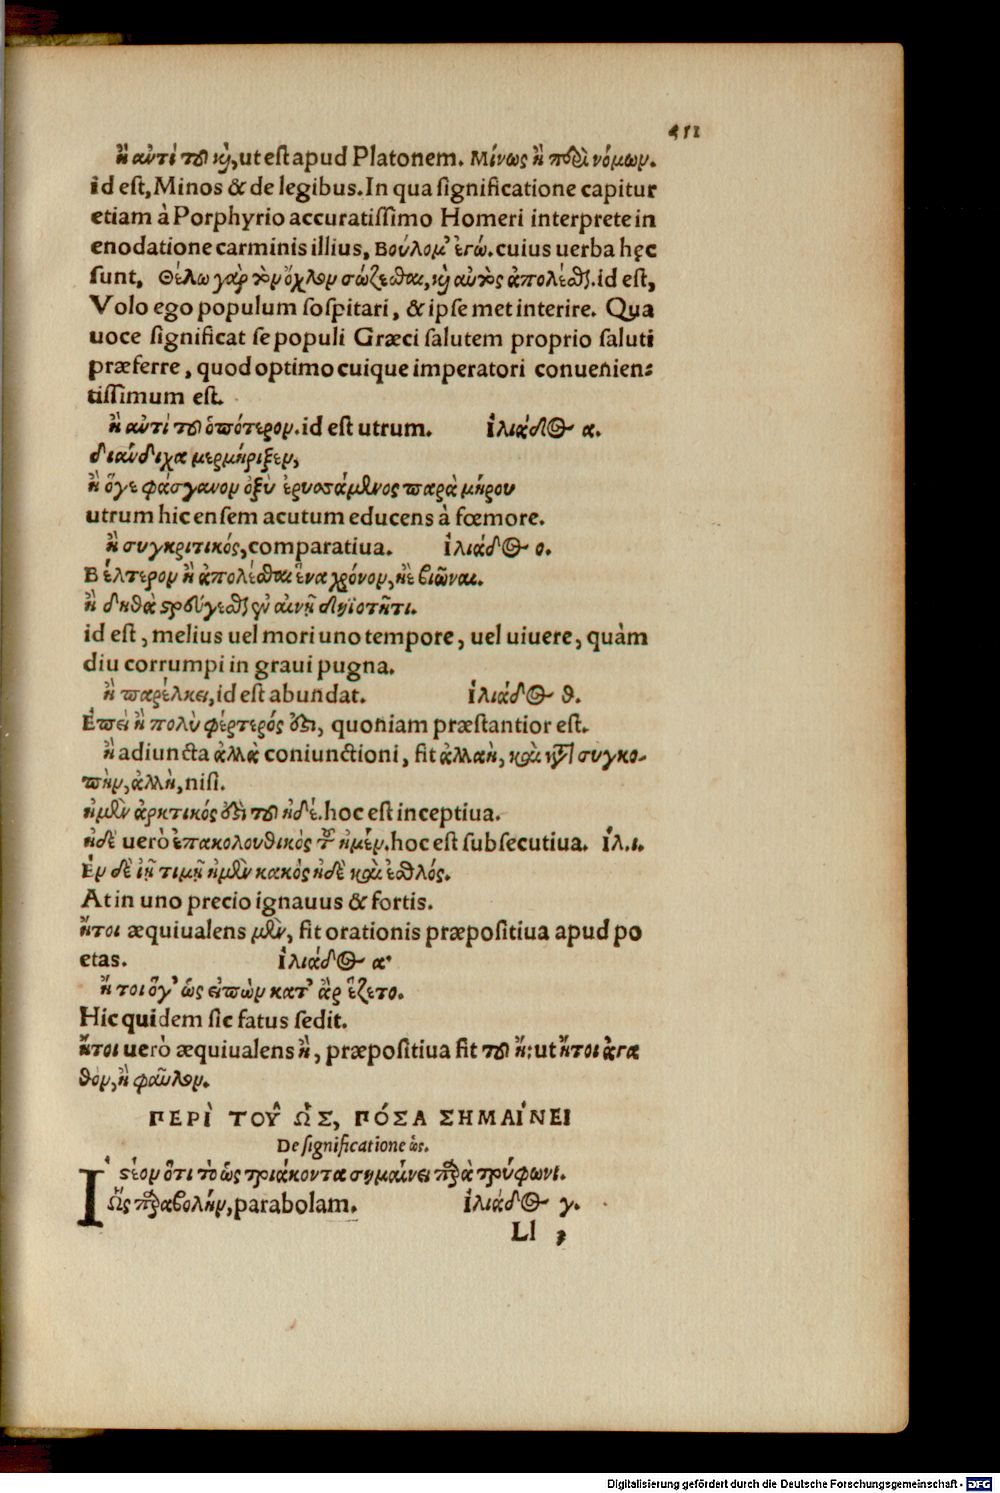 451
ἢ αὐτὶ τοῦ καὶ, ut est apud Platonem. Μίνως ἢ περὶ νόμωμ.
id est, Minos & de legibus. In qua significatione capitur
etiam à Porphyrio accuratissimo Homeri interprete in
enodatione carminis illius, Βούλομ' ἐγώ. cuius uerba hęc
sunt, Θέλω γὰρ τὸν ὄχλον σώζεσθαι, καὶ αὐτὸς ἀπολέσθαι. id est,
Volo ego populum sospitari, & ipse met interire. Qua
uoce significat se populi Græci salutem proprio saluti
præferre, quod optimo cuique imperatori conuenien-
tissimum est.
ἢ αὐτὶ τοῦ ὁπότερον. id est utrum. ἰλιάδος α.
διάνδιχα μερμήριξεν,
ἢ ὅγε φάσγανον ὀξὺ ἐρυσσάμενος παρὰ μήρου
utrum hic ensem acutum educens à fœmore.
ἢ συγκριτικός, comparatiua. ἰλιάδος ο.
Βέλτερον ἢ ἀπολέσθαι ἕνα χρόνον, ἠὲ βιῶναι.
ἢ δηθὰ στρεύγεσθαι ἐν αἰνῇ δηϊοτῆτι.
id est, melius uel mori uno tempore, uel uiuere, quàm
diu corrumpi in graui pugna.
ἢ παρέλκει, id est abundat. ἰλιάδος θ.
Ἐπεὶ ἢ πολὺ φέρτερός ἐστι, quoniam præstantior est.
ἢ adiuncta ἀλλὰ coniunctioni, fit ἀλλαὴ, καὶ κατὰ συγκο-
πὴν, ἀλλὴ, nisi.
ἠμὲν ἀρκτικός ἐστὶ τοῦ ἠδέ. hoc est inceptiua.
ἠδὲ uerò ἐπακολουθικὸς τοῦ ἠμέν. hoc est subsecutiua. ἰλ. ι.
Ἐν δὲ ἰῇ τιμῇ ἠμὲν κακὸς ἠδὲ καὶ ἐσθλός.
At in uno precio ignauus & fortis.
ἤτοι æquiualens μὲν, fit orationis præpositiua apud po
etas. ἰλιάδος α.
ἤ τοι ὅγ' ὡς εἰπὼν κατ' ἂρ ἕζετο.
Hic quidem sic fatus sedit.
ἤτοι uerò æquiualens ἢ, præpositiua fit τοῦ ἤ: ut ἤτοι ἀγα
θὸν, ἢ φαῦλον.
ΠΕΡῚ ΤΟΥ͂ ὩΣ, ΠΌΣΑ ΣΗΜΑΊΝΕΙ
De significatione ὡς.
Ἰστέον ὅτι τὸ ὡς τριάκοντα σημαίνει παρὰ τρύφωνι.
Ὣς παραβολὴν, parabolam. ἰλιάδος γ.
Ll 3
Digitalisierung gefördert durch die Deutsche Forschungsgemeinschaft - DFG